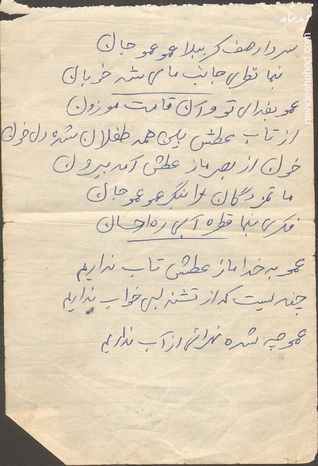 سردار صف کربلا عمو عمو جان
بنما نظری جانب ما ای شه خوبان
عمو بفدای تو و آن قامت موزون
از تاب عطش بین همه طفلان شده دل خون
خون از بصر ما ز عطش آمد بیرون
ما غمزدگان را نگر عمو عمو جان
فکری بنما قطره آبی ره احسان
عمو به خدا ما ز عطش تاب نداریم
چند لیست که از تشنه لبی خواب نداریم
عمو چه شده از آب نداریم